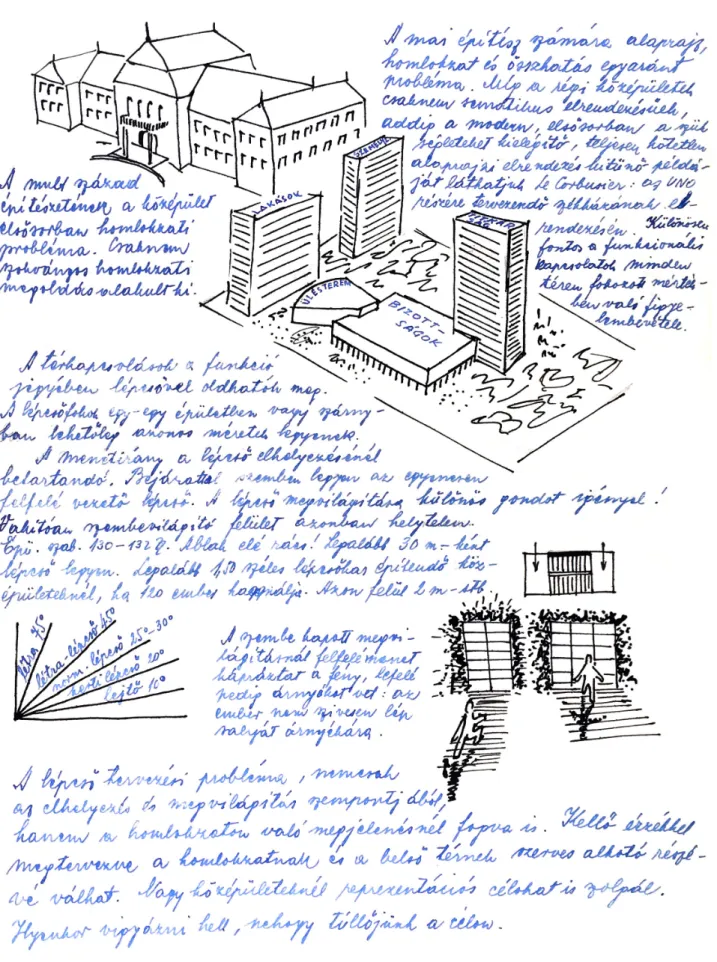 A mai építész számára alaprajz,
homlokzat és összhatás egyaránt
probléma. Míg a régi középületek
csaknem sematikus elrendezésűek,
addig a modern, elsősorban a szük-
ségleteket kielégítő, teljesen kötetlen
alaprajzi elrendezés kitünő példá-
ját láthatjuk le Corbusier: az UNO
részére tervezendő székházának el-
rendezésén. Különösen
fontos a funkcionális
kapcsolatok minden
téren fokozott mérték-
ben való figye-
lembevétele.
A mult század
építészetének a középület
elsősorban homlokzati
probléma. Csaknem
szokványos homlokzati
megoldás alakult ki.
LAKÁSOK
ÜLÉSTEREM
BIZOTT-
SÁGOK
A térkapcsolások a funkció
jegyében lépcsővel oldhatók meg.
A lépcsőfokok egy-egy épületben vagy szárny-
ban lehetőleg azonos méretek legyenek.
A menetirány a lépcső elhelyezésénél
betartandó. Bejárattal szemben legyen az egyenesen
felfelé vezető lépcső. A lépcső megvilágítása különös gondot igényel!
Vakítóan szembevilágító felület azonban helytelen.
Épü. szab. 130-132 §. Ablak elé rács! Legalább 30 m-ként
lépcső legyen. Legalább 1,50 széles lépcsőkar építendő köz-
épületeknél, ha 120 ember használja. Azon felül 2 m-stb.
létra 75°
létra-lépcső 45°
norm. lépcső 25°-30°
kerti lépcső 20°
lejtő 10°
A szembe kapott megvi-
lágításnál felfelémenet
kápráztat a fény, lefelé
pedig árnyékot vet: az
ember nem szivesen lép
saját árnyékára.
A lépcső tervezési probléma, nemcsak
az elhelyezés és megvilágítás szempontjából,
hanem a homlokzaton való megjelenésnél fogva is. Kellő érzékkel
megtervezve a homlokzatnak és a belső térnek szerves alkotó részé-
vé válhat. Nagy középületeknél reprezentációs célokat is szolgál.
Ilyenkor vigyázni kell, nehogy túllőjünk a célon.